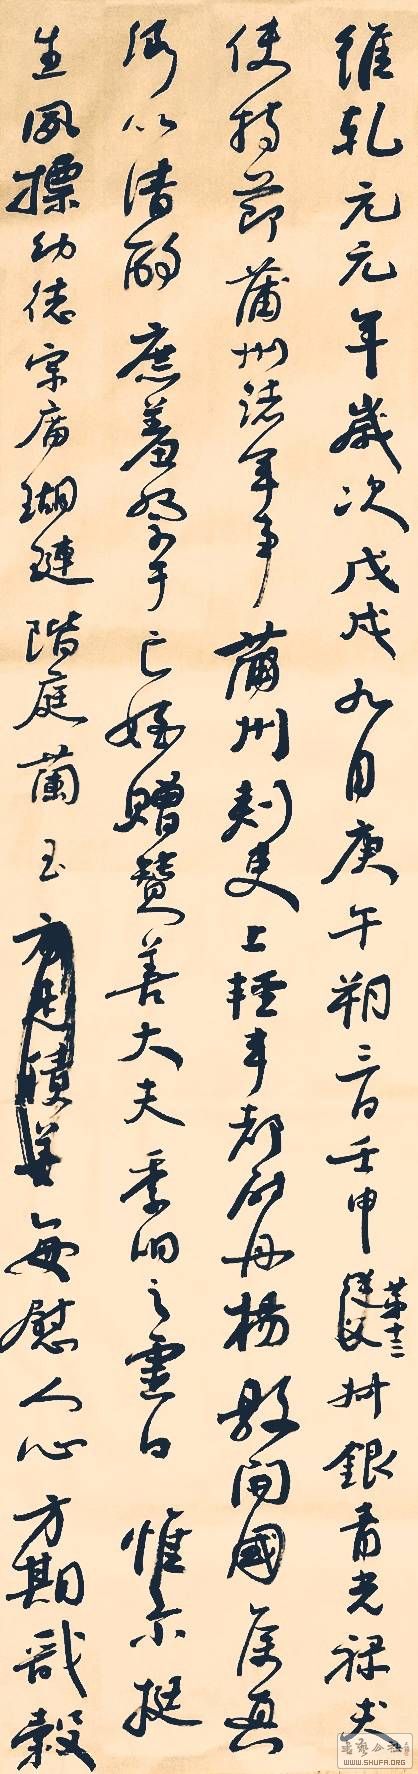 維乾元元年歲次戊戌九月庚午朔三日壬申從父叔銀青光祿夫
第十三
使持節蒲州諸軍事蒲州刺史上輕車都尉丹楊縣開國侯真
卿以清酌庶羞祭于亡姪贈贊善大夫季明之靈曰惟尔挺
生夙標幼德宗廟瑚璉階庭蘭玉方憑積善每慰人心方期戩穀
WWW.SHUFA.ORG